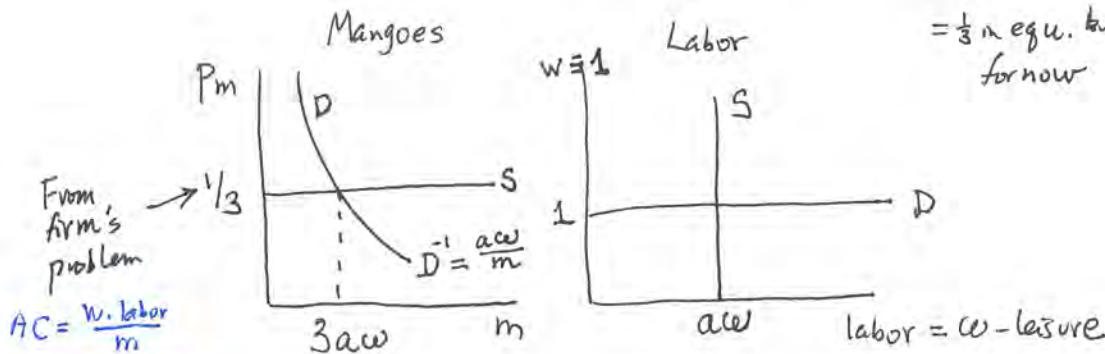 Mangoes
Labor
= 1/3 in equ.
for now
Pm
D
w ≡ 1
S
From
firm's
problem
→ 1/3
S
1
D
D⁻¹ = aω/m
AC = w. labor/m
3aω
m
aω
labor = ω - leisure